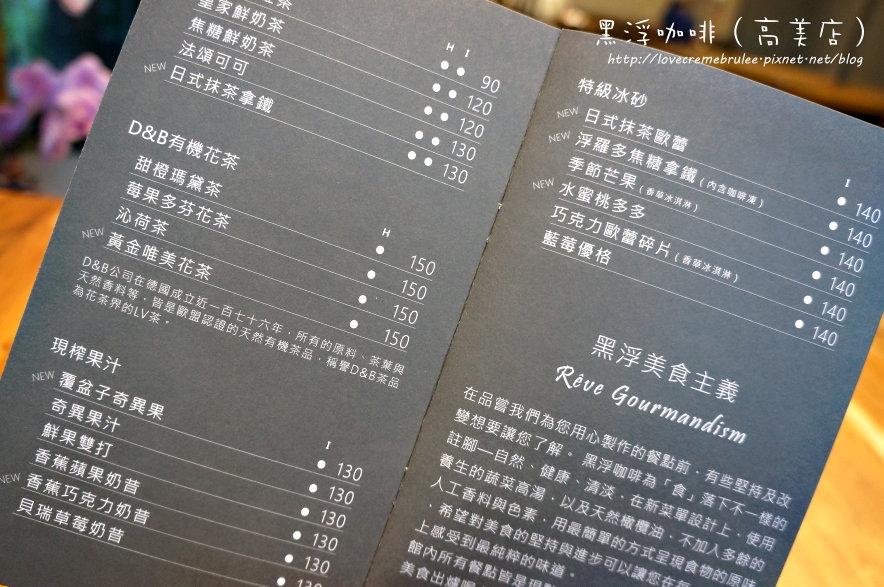 黑浮咖啡（高美店）
http://lovecremebrulee.pixnet.net/blog
皇家鮮奶茶
焦糖鮮奶茶
法頌可可
NEW 日式抹茶拿鐵
H I
90
120
120
130
130
D&B有機花茶
H
甜橙瑪黛茶 150
莓果多芬花茶 150
沁荷茶 150
NEW 黃金唯美花茶 150
D&B公司在德國成立近一百七十六年，所有的原料、茶葉與
天然香料等，皆是歐盟認證的天然有機茶品，稱譽D&B茶品
為花茶界的LV茶。
現榨果汁
I
NEW 覆盆子奇異果 130
奇異果汁 130
鮮果雙打 130
香蕉蘋果奶昔 130
NEW 香蕉巧克力奶昔 130
貝瑞草莓奶昔 130
特級冰砂
I
NEW 日式抹茶歐蕾 140
NEW 浮羅多焦糖拿鐵（內含咖啡凍） 140
季節芒果（香草冰淇淋） 140
NEW 水蜜桃多多 140
巧克力歐蕾碎片（香草冰淇淋） 140
藍莓優格 140
黑浮美食主義
Rêve Gourmandism
在品嘗我們為您用心製作的餐點前，有些堅持及改
變想要讓您了解。黑浮咖啡為「食」落下不一樣的
註腳—自然、健康、清淡，在新菜單設計上，使用
養生的蔬菜高湯，以及天然橄欖油，不加人多餘的
人工香料與色素，用最簡單的方式呈現食物的原味
，希望對美食的堅持與進步可以讓您在
上感受到最純粹的味道。
館內所有餐點皆是現
美食出爐